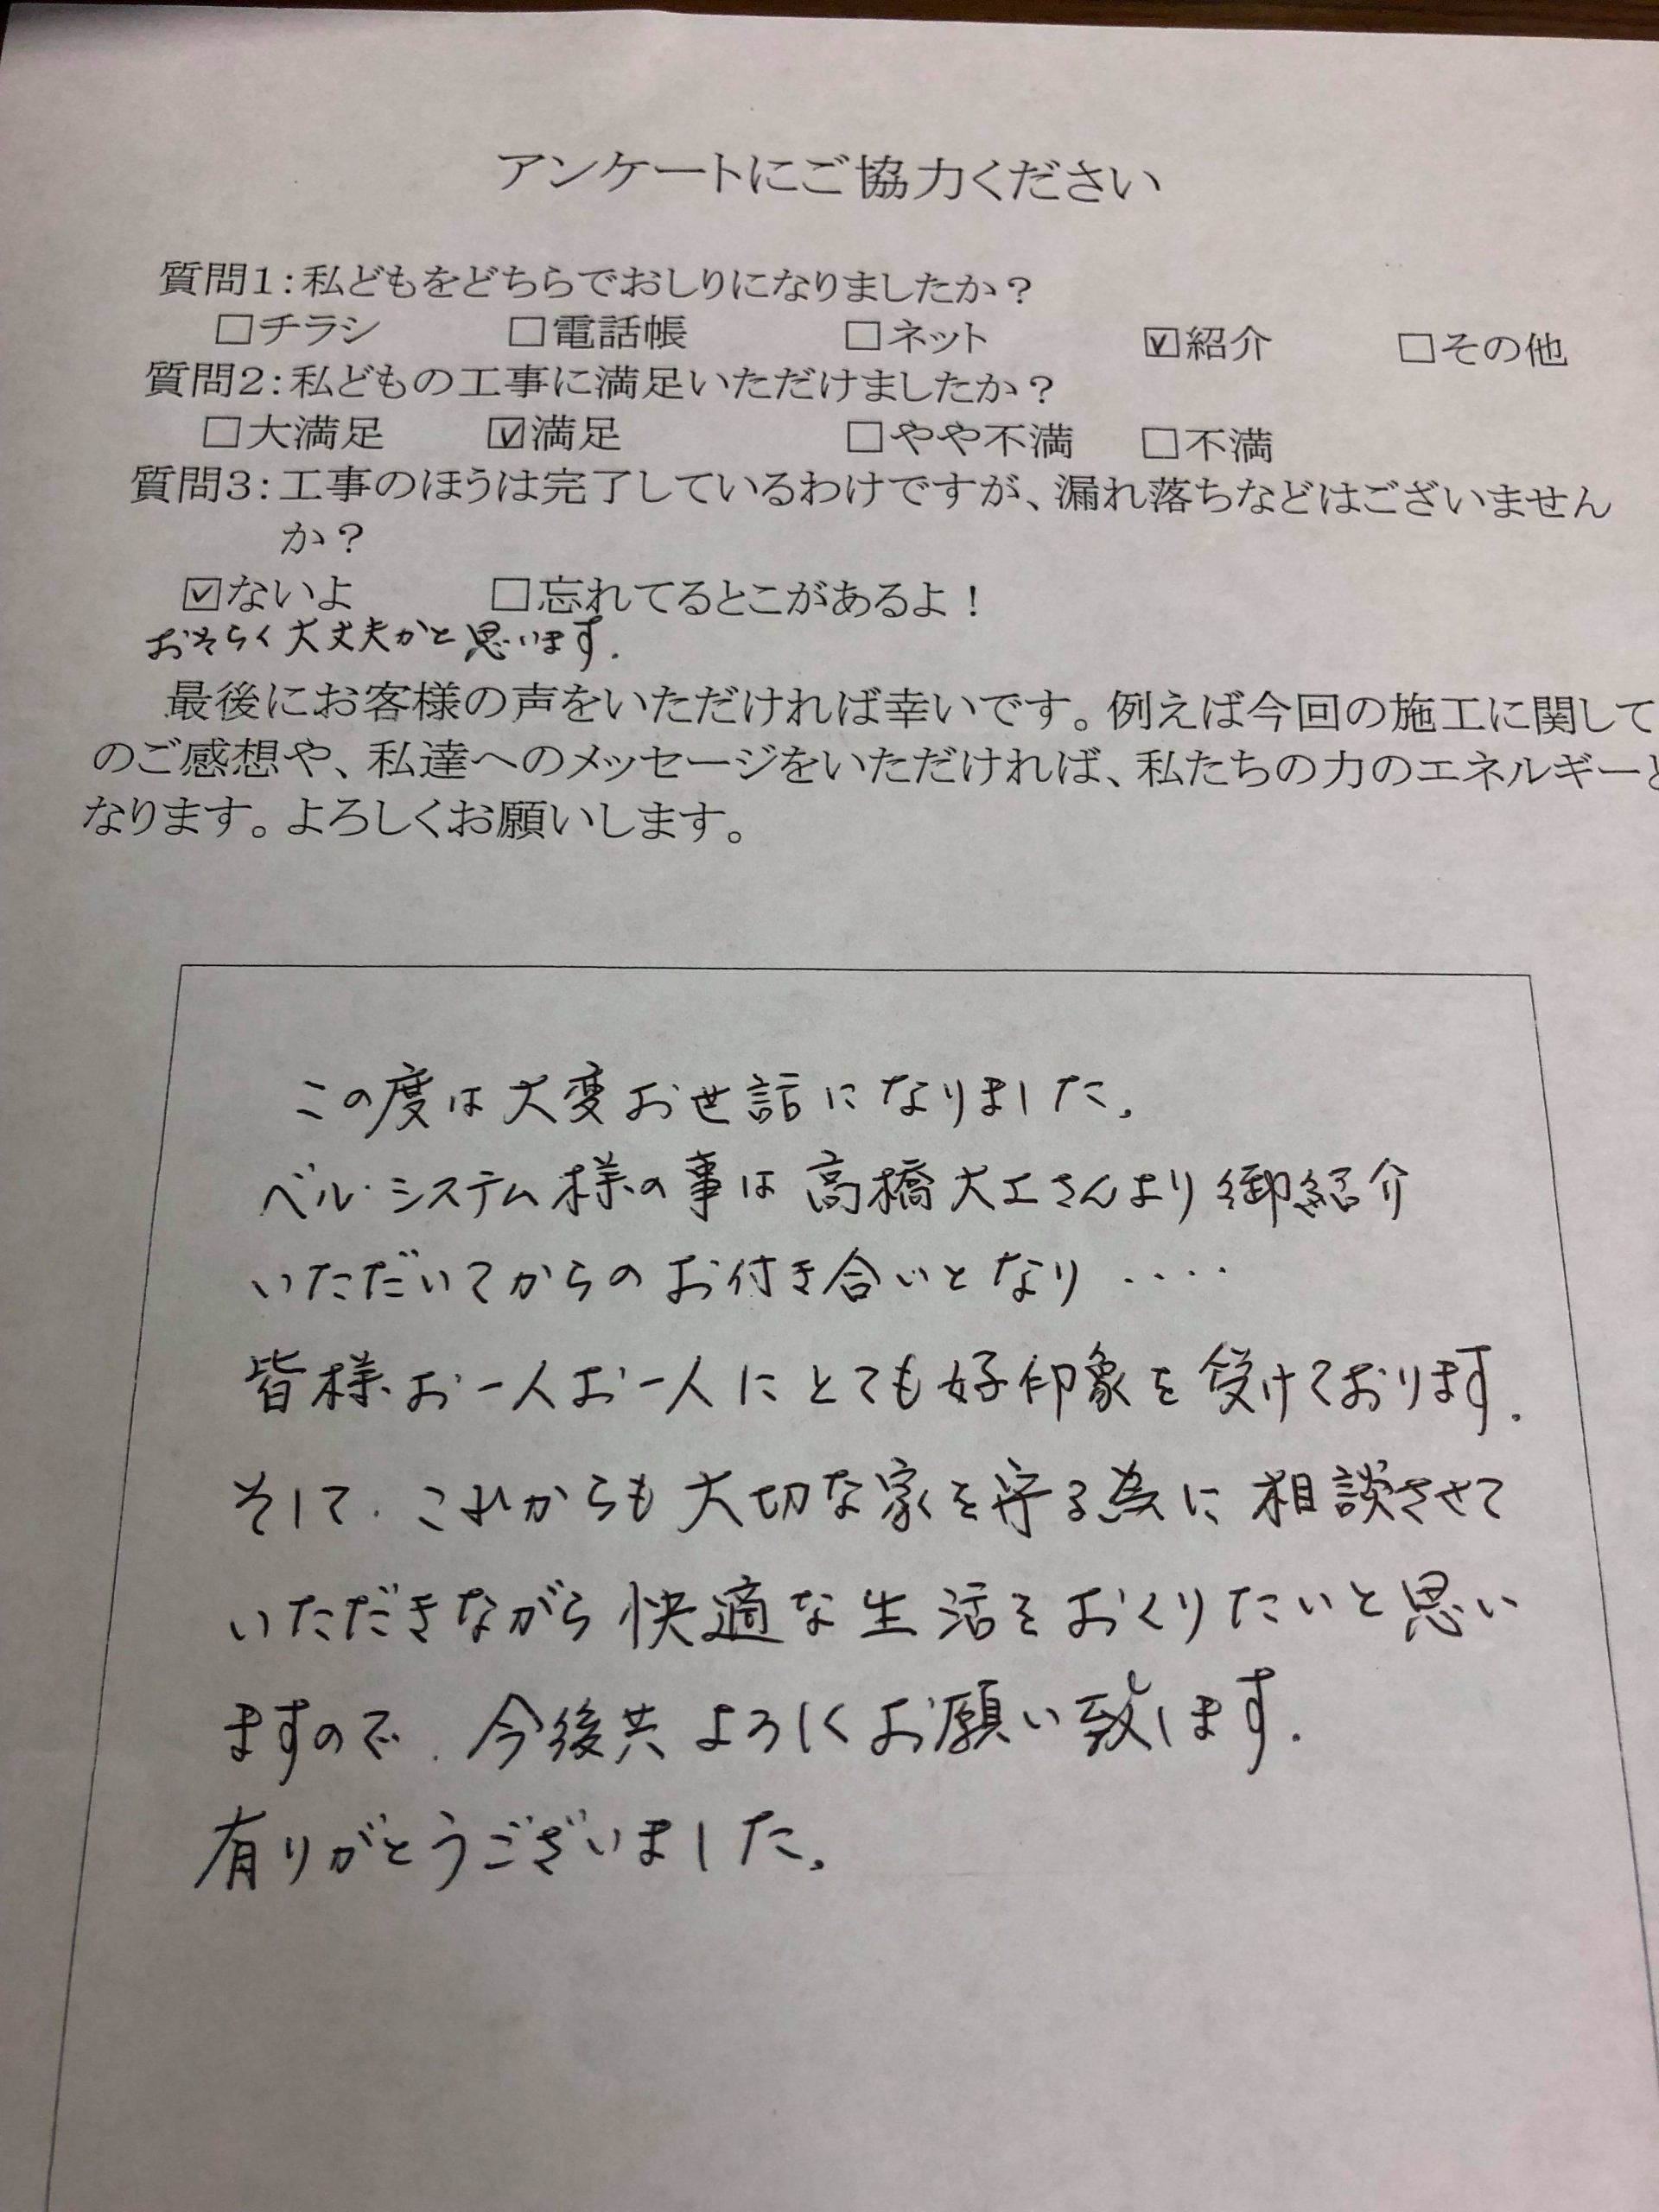 アンケートにご協力ください
質問1：私どもをどちらでおしりになりましたか？
□チラシ □電話帳 □ネット ☑紹介 □その他
質問2：私どもの工事に満足いただけましたか？
□大満足 ☑満足 □やや不満 □不満
質問3：工事のほうは完了しているわけですが、漏れ落ちなどはございません
か？
☑ないよ □忘れてるとこがあるよ！
おそらく大丈夫かと思います.
最後にお客様の声をいただければ幸いです。例えば今回の施工に関して
のご感想や、私達へのメッセージをいただければ、私たちの力のエネルギーと
なります。よろしくお願いします。
この度は大変お世話になりました。
ベル・システム様の事は高橋大工さんより御紹介
いただいてからのお付き合いとなり・・・・
皆様お一人お一人にとても好印象を受けております.
そして、これからも大切な家を守る為に相談させて
いただきながら快適な生活をおくりたいと思い
ますので、今後共よろしくお願い致します.
有りがとうございました。